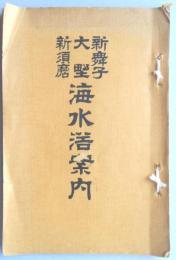 新舞子
大野
新須磨
海水浴案内